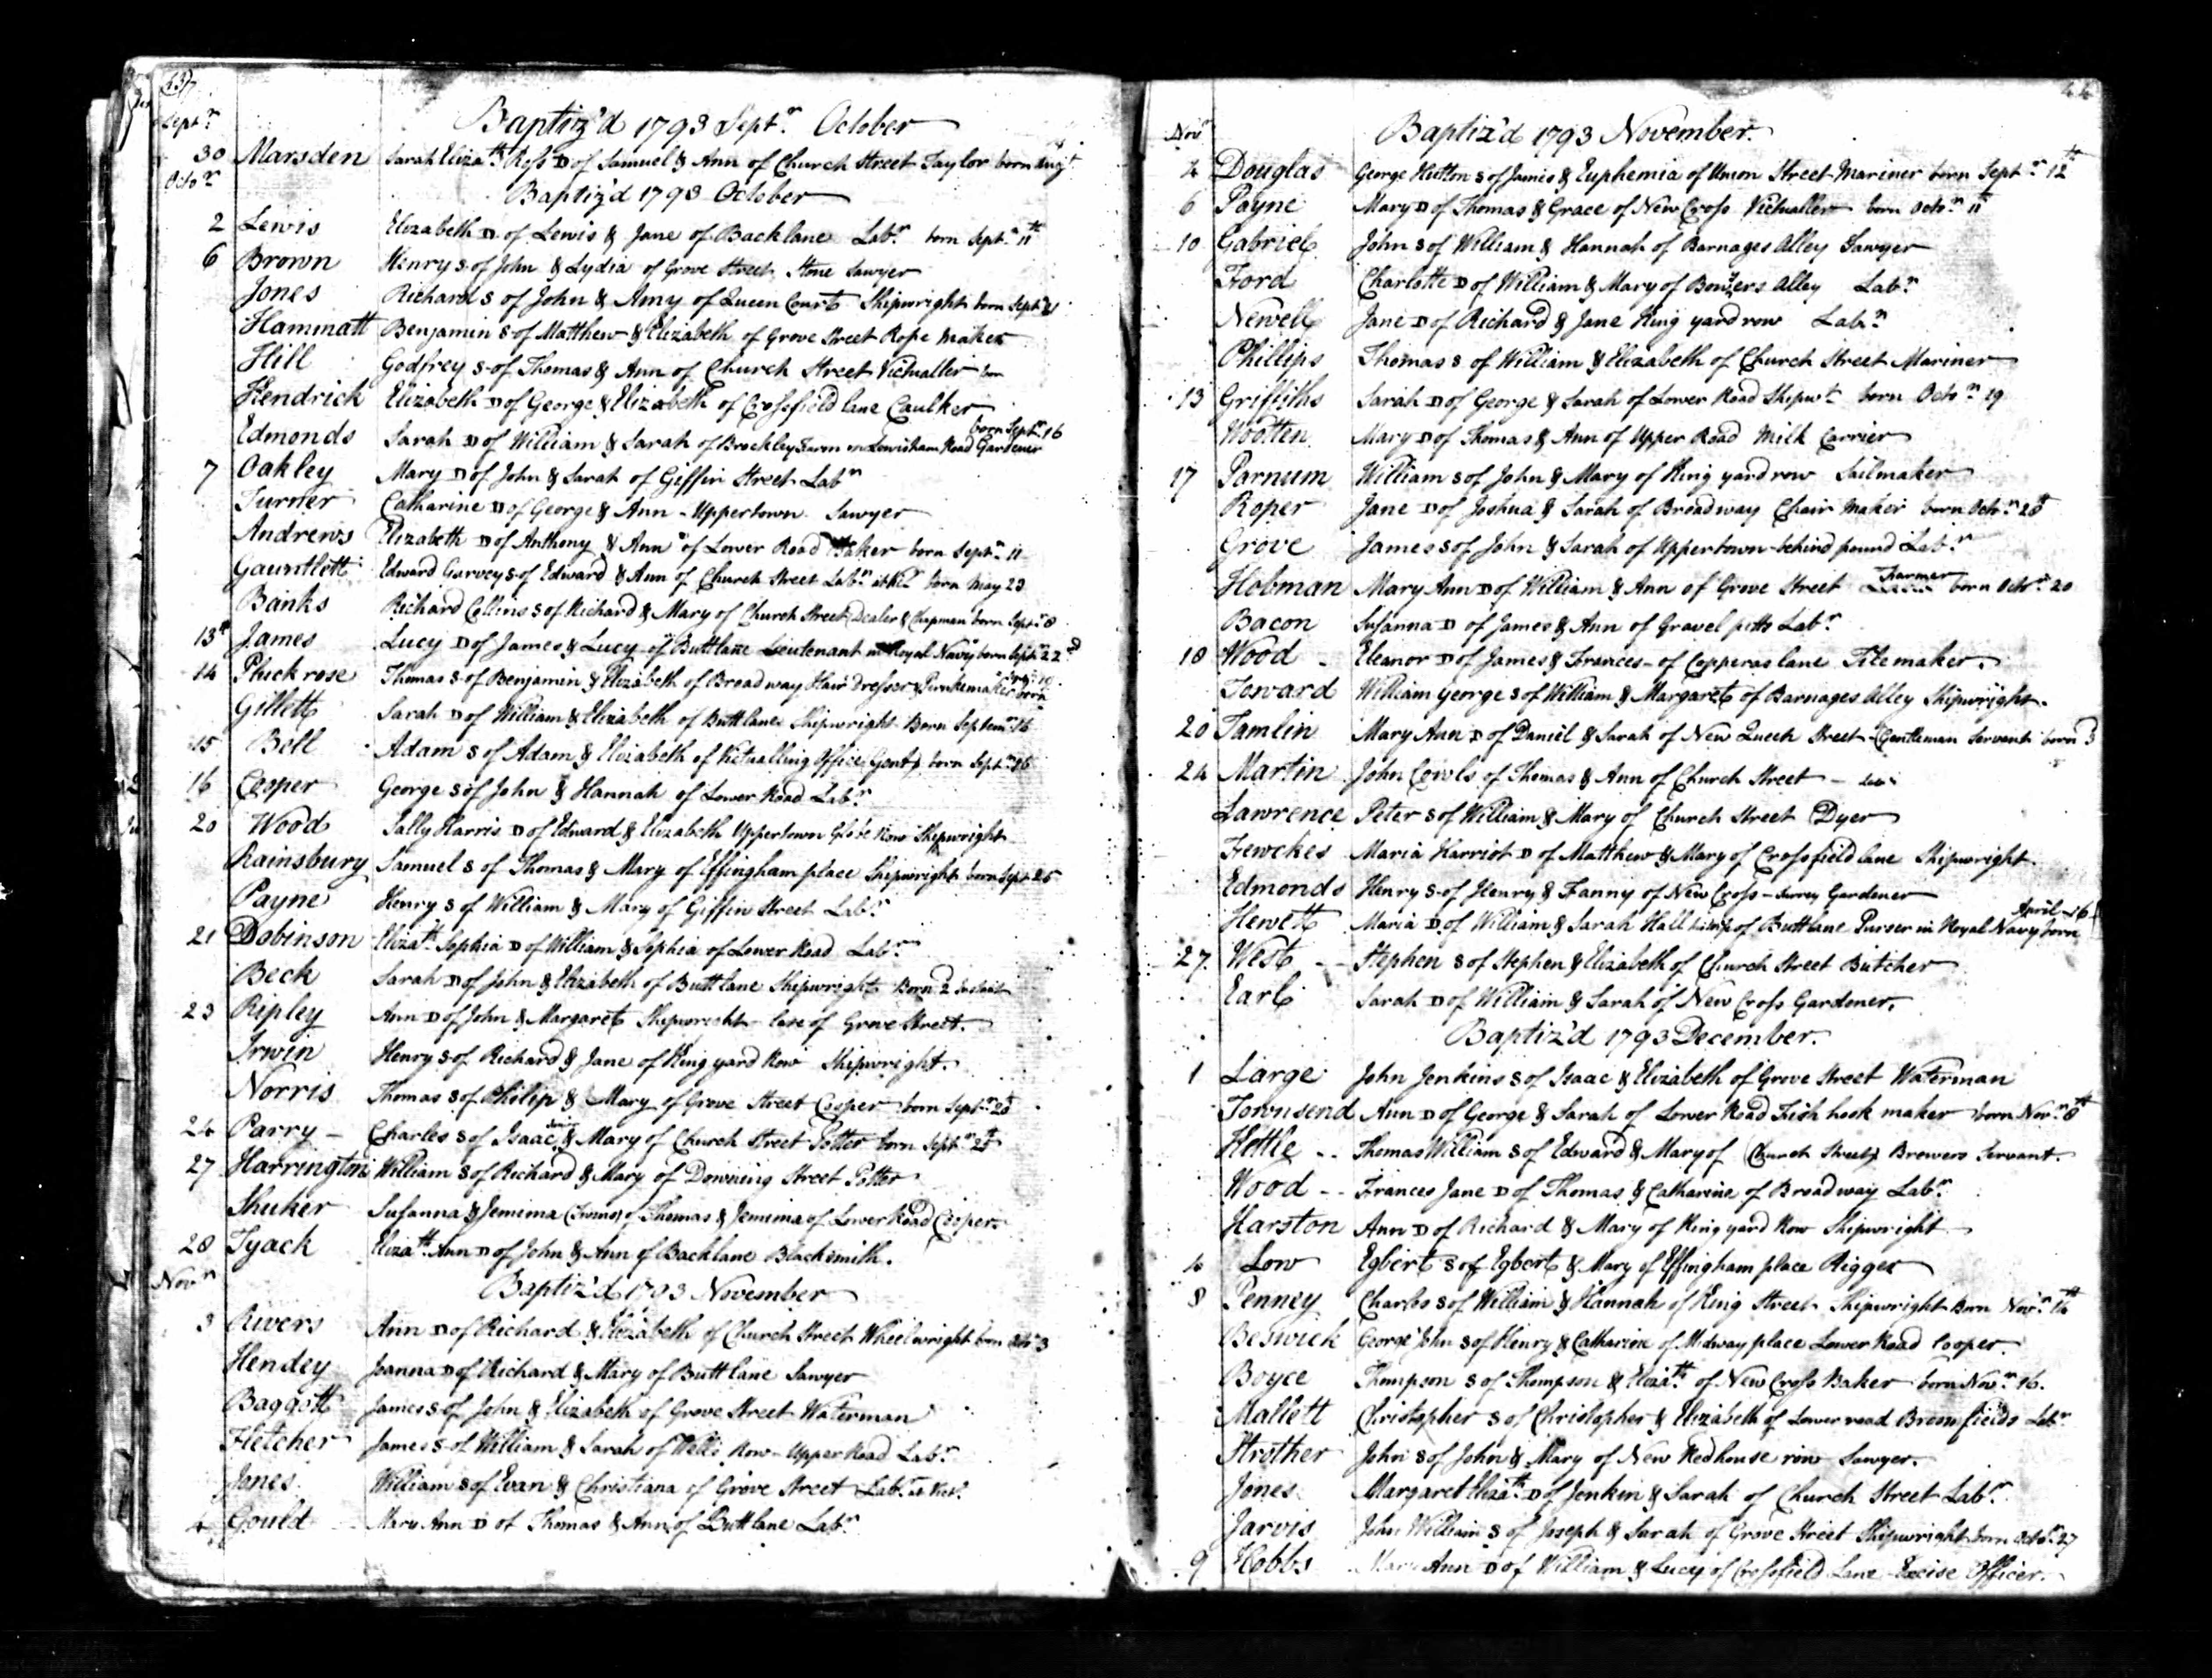 637
Sept.r
Baptiz'd 1793 Sept.r October
30 Marsden Sarah Eliza.th Ross D of Samuel & Ann of Church Street Taylor born Aug.t
Octo.r
Baptiz'd 1793 October
2 Lewis Elizabeth D of Lewis & Jane of Backlane Lab.r born Sept.r 11th
6 Brown Henry S of John & Lydia of Grove Street Stone Sawyer
Jones Richard S of John & Amy of Queen Court Shipwright born Sept.r
Hammatt Benjamin S of Matthew & Elizabeth of Grove Street Rope maker
Hill Godfrey S of Thomas & Ann of Church Street Victualler
Hendrick Elizabeth D of George & Elizabeth of Crossfield lane Caulker
Edmonds Sarah D of William & Sarah of Brockley Farm on Lewisham Road Gardener born Sept.r 16
7 Oakley Mary D of John & Sarah of Giffin Street Lab.r
Turner Catharine D of George & Ann - Uppertown Sawyer
Andrews Elizabeth D of Anthony & Ann of Lower Road Baker born Sept.r 11
Gauntlett Edward Garvey S of Edward & Ann of Church Street Lab.r born May 23
Banks Richard Collins S of Richard & Mary of Church Street Dealer & Chapman born Sept.r 8
13th James Lucy D of James & Lucy of Buttlane Lieutenant in Royal Navy born Sept.r 22d
14 Pluckrose Thomas S of Benjamin & Elizabeth of Broadway Hair Dresser & Perukemaker born
Gillett Sarah D of William & Elizabeth of Buttlane Shipwright Born Septem.r 16
15 Bell Adam S of Adam & Elizabeth of Victualling Office Gent. born Sept.r 16
16 Cooper George S of John & Hannah of Lower Road Lab.r
20 Wood Sally Harris D of Edward & Elizabeth Uppertown Globe Row Shipwright
Rainsbury Samuel S of Thomas & Mary of Effingham place Shipwright born Sept.r 25
Payne Henry S of William & Mary of Giffin Street Lab.r
21 Dobinson Eliza.th Sophia D of William & Sophia of Lower Road Lab.r
Beck Sarah D of John & Elizabeth of Buttlane Shipwright Born 2 Instant
23 Ripley Ann D of John & Margaret Shipwright late of Grove Street.
Irwin Henry S of Richard & Jane of King yard Row Shipwright.
Norris Thomas S of Philip & Mary of Grove Street Cooper born Sept.r 28
24 Parry - Charles S of Isaac Junr. & Mary of Church Street Potter born Sept.r 28th
27 Harrington William S of Richard & Mary of Downing Street Potter
Shuker Susanna & Jemima (Twins) of Thomas & Jemima of Lower Road Cooper
28 Tyack Eliza.th Ann D of John & Ann of Backlane Blacksmith.
Nov.r
Baptiz'd 1793 November
3 Rivers Ann D of Richard & Elizabeth of Church Street Wheelwright born Oct.r 3
Hendey Joanna D of Richard & Mary of Buttlane Sawyer
Baggott James S of John & Elizabeth of Grove Street Waterman
Fletcher James S of William & Sarah of Wells Row - Upper Road Lab.r
Jones William S of Evan & Christiana of Grove Street Lab.r at Vict.
4 Gould Mary Ann D of Thomas & Ann of Buttlane Lab.r
Nov.r
Baptiz'd 1793 November.
4 Douglas George Hutton S of James & Euphemia of Union Street Mariner born Sept.r 12th
6 Payne Mary D of Thomas & Grace of New Cross Victualler born Octo.r 11th
10 Gabriel John S of William & Hannah of Barnages Alley Sawyer
Ford Charlotte D of William & Mary of Bowyers Alley Lab.r
Newell Jane D of Richard & Jane King yard row Lab.r
Phillips Thomas S of William & Elizabeth of Church Street Mariner
13 Griffiths Sarah D of George & Sarah of Lower Road Shipw.t born Octo.r 19
Wootten Mary D of Thomas & Ann of Upper Road Milk Carrier
17 Parnum William S of John & Mary of King yard row Sailmaker
Roper Jane D of Joshua & Sarah of Broadway Chair maker born Octo.r 28th
Grove James S of John & Sarah of Uppertown behind pound Lab.r
Hobman Mary Ann D of William & Ann of Grove Street Farmer born Octo.r 20
Bacon Susanna D of James & Ann of Gravel pitts Lab.r
18 Wood - Eleanor D of James & Frances of Copperas lane Tilemaker.
Toward William George S of William & Margaret of Barnages Alley Shipwright.
20 Tamlin Mary Ann D of Daniel & Sarah of New Queen Street Gentleman Servant born 3
24 Martin John Cowls of Thomas & Ann of Church Street -
Lawrence Peter S of William & Mary of Church Street Dyer
Fewckes Maria Harriot D of Matthew & Mary of Crossfield lane Shipwright.
Edmonds Henry S of Henry & Fanny of New Cross - Surrey Gardener
Hewett Maria D of William & Sarah Hall his wife of Buttlane Purser in Royal Navy born April 16
27. West - - Stephen S of Stephen & Elizabeth of Church Street Butcher
Earl Sarah D of William & Sarah of New Cross Gardener.
Baptiz'd 1793 December.
1 Large John Jenkins S of Isaac & Elizabeth of Grove Street Waterman
Townsend Ann D of George & Sarah of Lower Road Fish hook maker born Nov.r 8th
Hottle - - Thomas William S of Edward & Mary of Church Street Brewers Servant.
Wood - - Frances Jane D of Thomas & Catharine of Broadway Lab.r
Harston Ann D of Richard & Mary of King yard Row Shipwright
4 Low Egbert S of Egbert & Mary of Effingham place Rigger
8 Penney Charles S of William & Hannah of King Street Shipwright Born Nov.r 14th
Beswick George John S of Henry & Catharine of Midway place Lower Road Cooper.
Boyce Thompson S of Thompson & Eliza.th of New Cross Baker born Nov.r 16.
Mallett Christopher S of Christopher & Elizabeth of Lower road Broomfields Lab.r
Strother John S of John & Mary of New Redhouse row Sawyer.
Jones Margaret Eliza.th D of Jenkin & Sarah of Church Street Lab.r
Jarvis John William S of Joseph & Sarah of Grove Street Shipwright born Octo.r 27
9 Hobbs Mary Ann D of William & Lucy of Crossfield Lane Excise Officer.